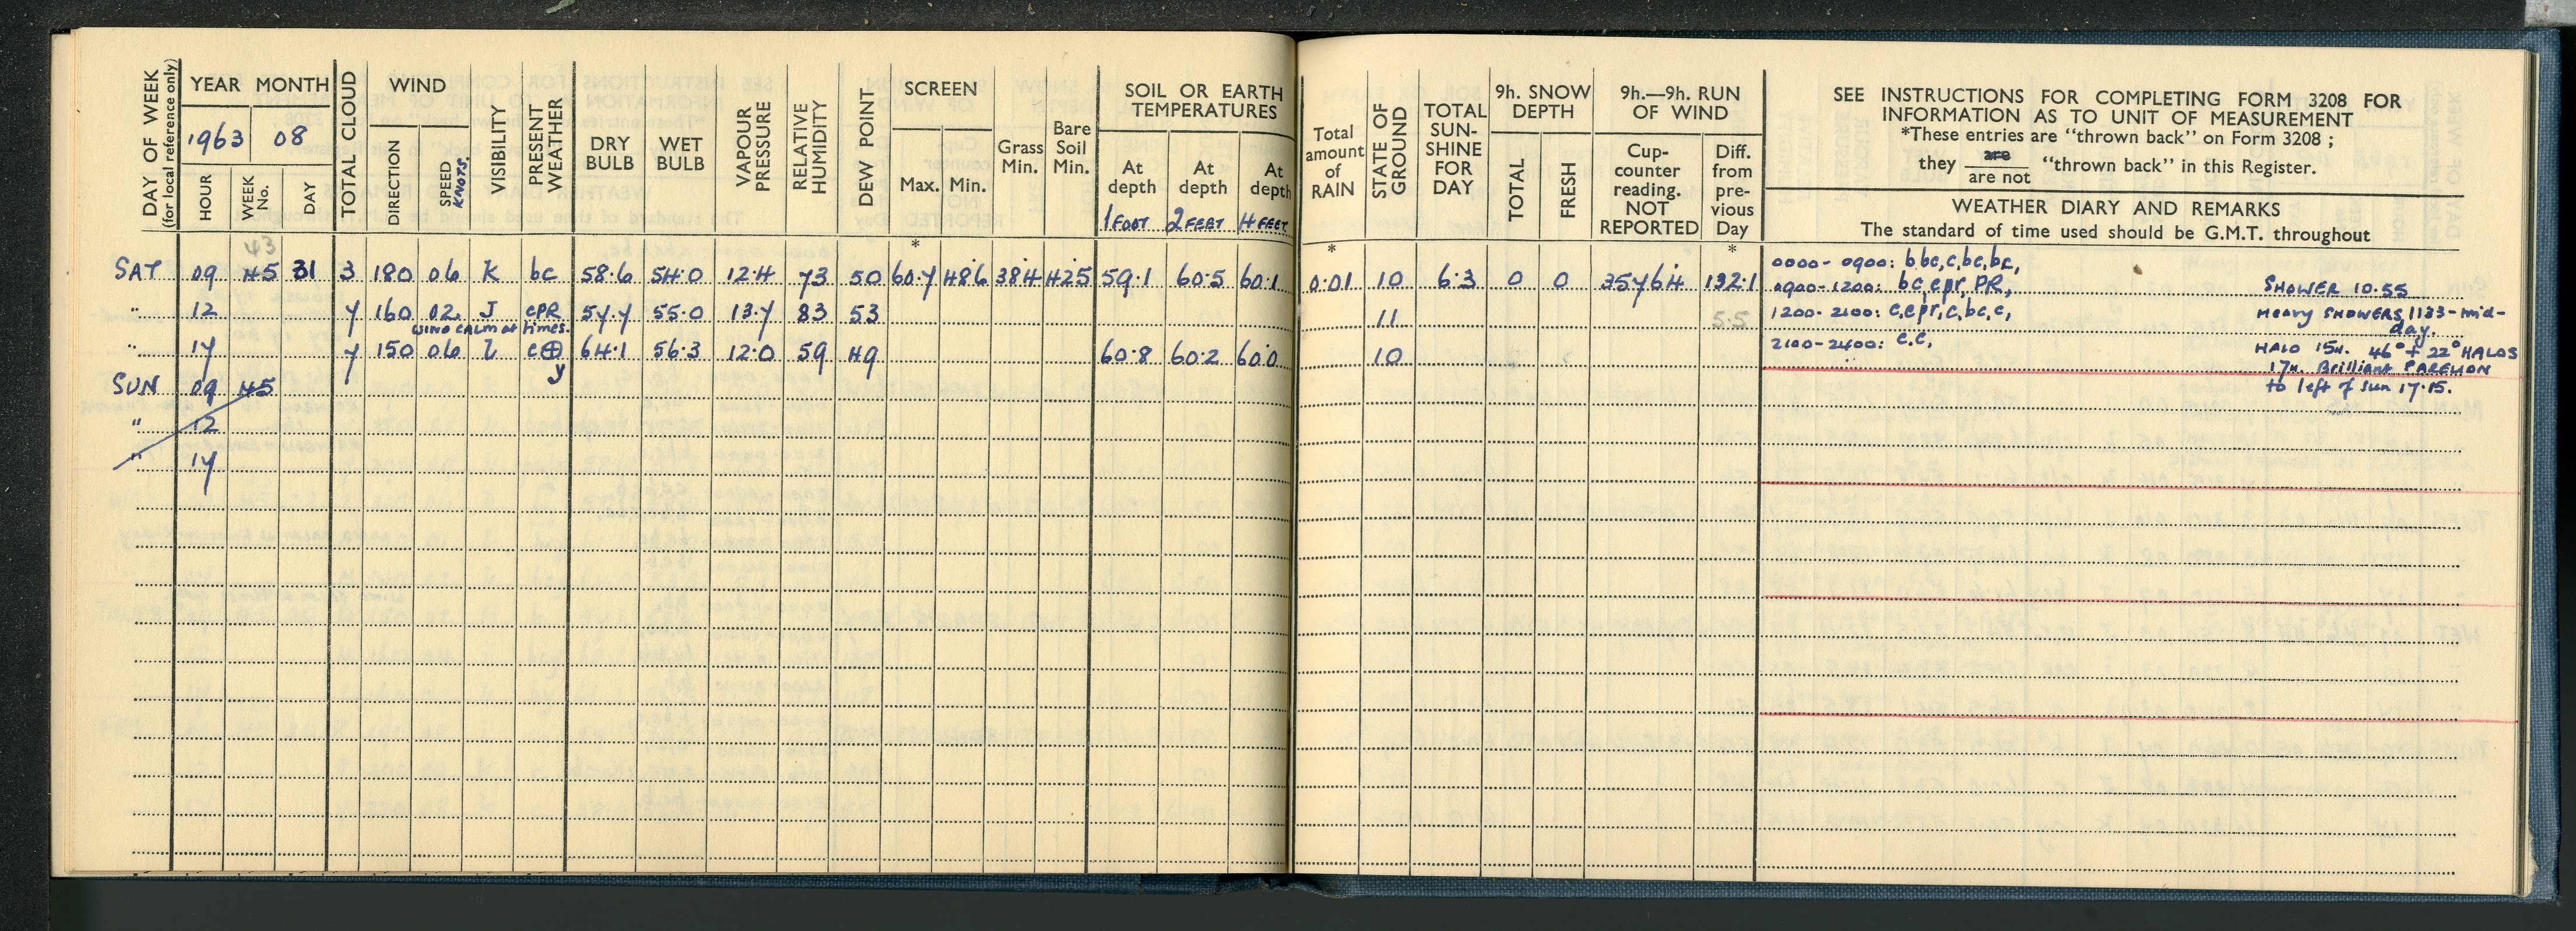 DAY OF WEEK
(for local reference only)
YEAR MONTH
1963 08
HOUR WEEK No. DAY
TOTAL CLOUD
WIND
DIRECTION SPEED KNOTS.
VISIBILITY
PRESENT WEATHER
DRY BULB
WET BULB
VAPOUR PRESSURE
RELATIVE HUMIDITY
DEW POINT
SCREEN
Max. Min.
Grass Min.
Bare Soil Min.
SOIL OR EARTH TEMPERATURES
At depth 1 FOOT
At depth 2 FEET
At depth 4 FEET
Total amount of RAIN
STATE OF GROUND
TOTAL SUN-SHINE FOR DAY
9h. SNOW DEPTH
TOTAL FRESH
9h.—9h. RUN OF WIND
Cup-counter reading. NOT REPORTED
Diff. from pre-vious Day
SEE INSTRUCTIONS FOR COMPLETING FORM 3208 FOR
INFORMATION AS TO UNIT OF MEASUREMENT
*These entries are "thrown back" on Form 3208 ;
they are / are not "thrown back" in this Register.
WEATHER DIARY AND REMARKS
The standard of time used should be G.M.T. throughout
* * *
43
SAT 09 45 31 3 180 06 K bc 58.6 54.0 12.4 73 50 60.7 48.6 38.4 42.5 59.1 60.5 60.1 0.01 10 6.3 0 0 35764 132.1 0000- 0900: b bc,c,bc,bc,
0900-1200: bc,c,pr,PR, SHOWER 10.55
" 12 7 160 02. J cPR 57.7 55.0 13.7 83 53 11 5.5 1200- 2100: c,c,pr,c,bc,c, Heavy SHOWERS 1133-mid-
day.
WIND CALM at times.
" 17 7 150 06 c⊕ 64.1 56.3 12.0 59 49 60.8 60.2 60.0 10 2100-2400: c.c, HALO 15h. 46° + 22° HALOS
y 17h. Brilliant PARELION
SUN 09 45 to left of sun 17.15.
" 12
" 17